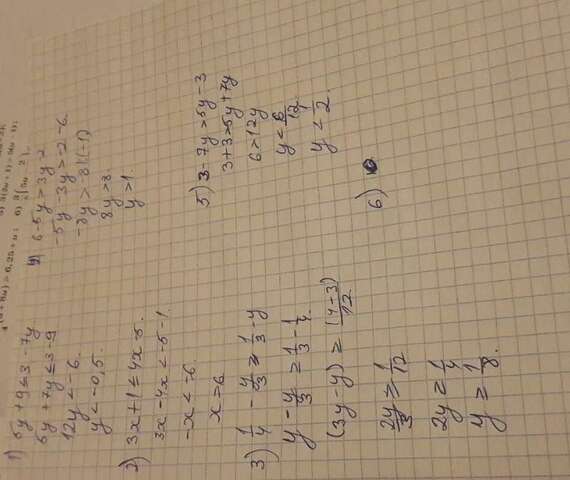 1) 5y + 9 ≤ 3 - 7y
5y + 7y ≤ 3 - 9
12y < -6.
y < -0,5.
2) 3x + 1 ≤ 4x - 5.
3x - 4x < -5 - 1.
-x < -6
x > 6
3) 1/4 - y/3 ≥ 1/3 - y
y - y/3 ≥ 1/3 - 1/4.
(3y - y) ≥ (4-3)/12
2y/3 ≥ 1/12
2y ≥ 1/4
y ≥ 1/8.
4) 6 - 5y > 3y - 2
-5y - 3y > -2 - 6.
-8y > -8 | (-1)
8y > 8
y > 1.
5) 3 - 7y > 5y - 3
3 + 3 > 5y + 7y
6 > 12y
y < 6/12
y < 1/2.
6)